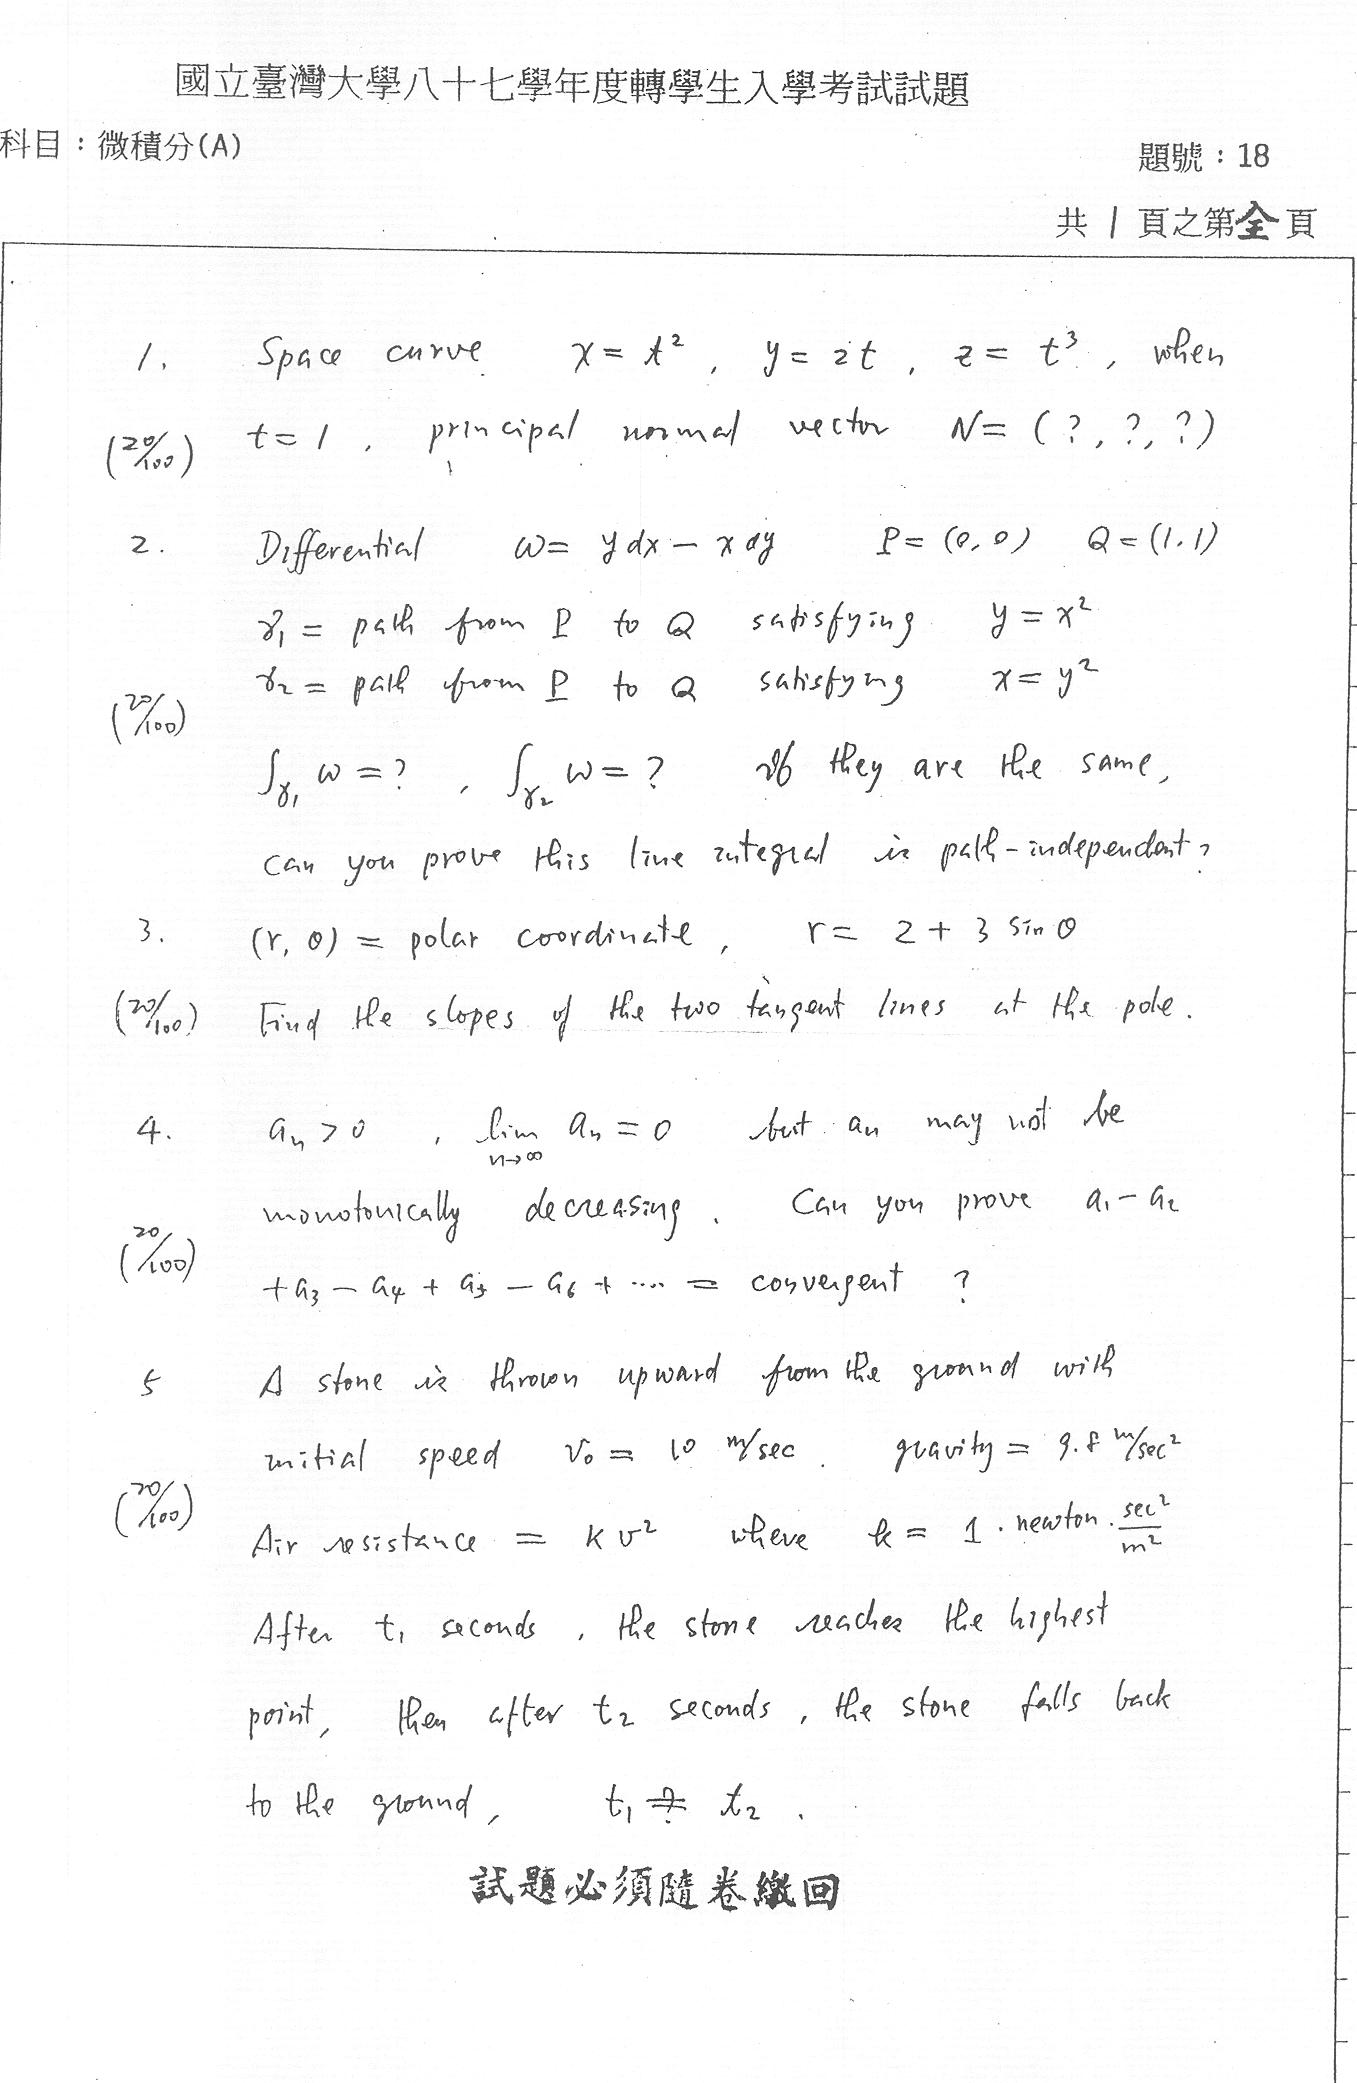 國立臺灣大學八十七學年度轉學生入學考試試題
科目：微積分(A)
題號：18
共 1 頁之第全頁
1. Space curve x = t², y = 2t, z = t³, when
(20/100) t = 1, principal normal vector N = (?, ?, ?)
2. Differential ω = ydx - xdy P = (0,0) Q = (1,1)
γ₁ = path from P to Q satisfying y = x²
γ₂ = path from P to Q satisfying x = y²
(20/100)
∫γ₁ ω = ?, ∫γ₂ ω = ? If they are the same,
can you prove this line integral is path-independent?
3. (r, θ) = polar coordinate, r = 2 + 3 sin θ
(20/100) Find the slopes of the two tangent lines at the pole.
4. aₙ > 0, lim n→∞ aₙ = 0 but aₙ may not be
monotonically decreasing. Can you prove a₁ - a₂
(20/100) + a₃ - a₄ + a₅ - a₆ + ···· = convergent ?
5 A stone is thrown upward from the ground with
initial speed v₀ = 10 m/sec. gravity = 9.8 m/sec²
(20/100) Air resistance = kv² where k = 1 · newton · sec²/m²
After t₁ seconds, the stone reaches the highest
point, then after t₂ seconds, the stone falls back
to the ground, t₁ ≟ t₂.
試題必須隨卷繳回